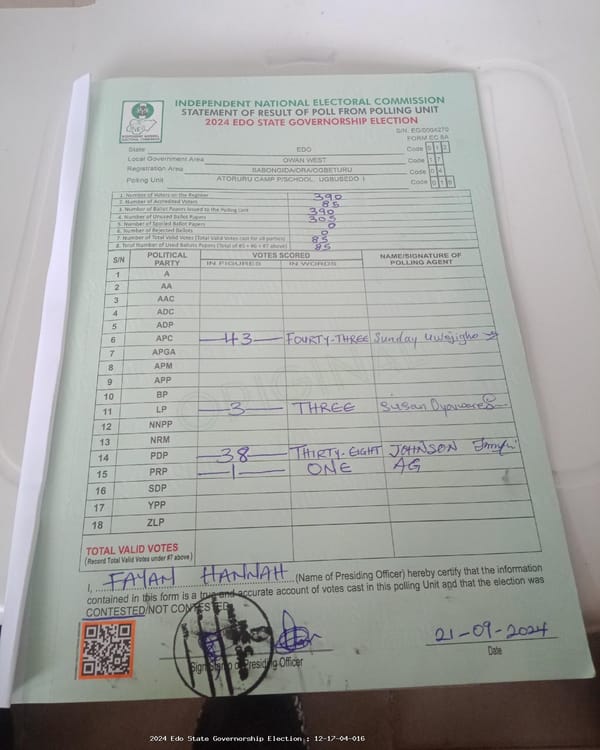 INDEPENDENT NATIONAL ELECTORAL COMMISSION
STATEMENT OF RESULT OF POLL FROM POLLING UNIT
2024 EDO STATE GOVERNORSHIP ELECTION
S/N. EG/0004270
FORM EC 8A
State EDO Code 012
Local Government Area OWAN WEST Code 17
Registration Area SABONGIDA/ORA/OGBETURU Code 04
Polling Unit ATORURU CAMP P/SCHOOL UGBUSEDO I Code 016
1. Number of Voters on the Register 390
2. Number of Accredited Voters 85
3. Number of Ballot Papers Issued to the Polling Unit 390
4. Number of Unused Ballot Papers 305
5. Number of Spoiled Ballot Papers 0
6. Number of Rejected Ballots 0
7. Number of Total Valid Votes (Total Valid Votes cast for all parties) 85
8. Total Number of Used Ballots Papers (Total of #5 + #6 + #7 above) 85
S/N POLITICAL PARTY VOTES SCORED NAME/SIGNATURE OF POLLING AGENT
IN FIGURES IN WORDS
1 A
2 AA
3 AAC
4 ADC
5 ADP
6 APC 43 FOURTY-THREE Sunday
7 APGA
8 APM
9 APP
10 BP
11 LP 3 THREE Susan
12 NNPP
13 NRM
14 PDP 38 THIRTY-EIGHT JOHNSON
15 PRP 1 ONE AG
16 SDP
17 YPP
18 ZLP
TOTAL VALID VOTES
(Record Total Valid Votes under #7 above)
I, FAYAN HANNAH (Name of Presiding Officer) hereby certify that the information
contained in this form is a true and accurate account of votes cast in this polling Unit and that the election was
CONTESTED/NOT CONTESTED
21-09-2024
Sign/Stamp of Presiding Officer Date
2024 Edo State Governorship Election : 12-17-04-016